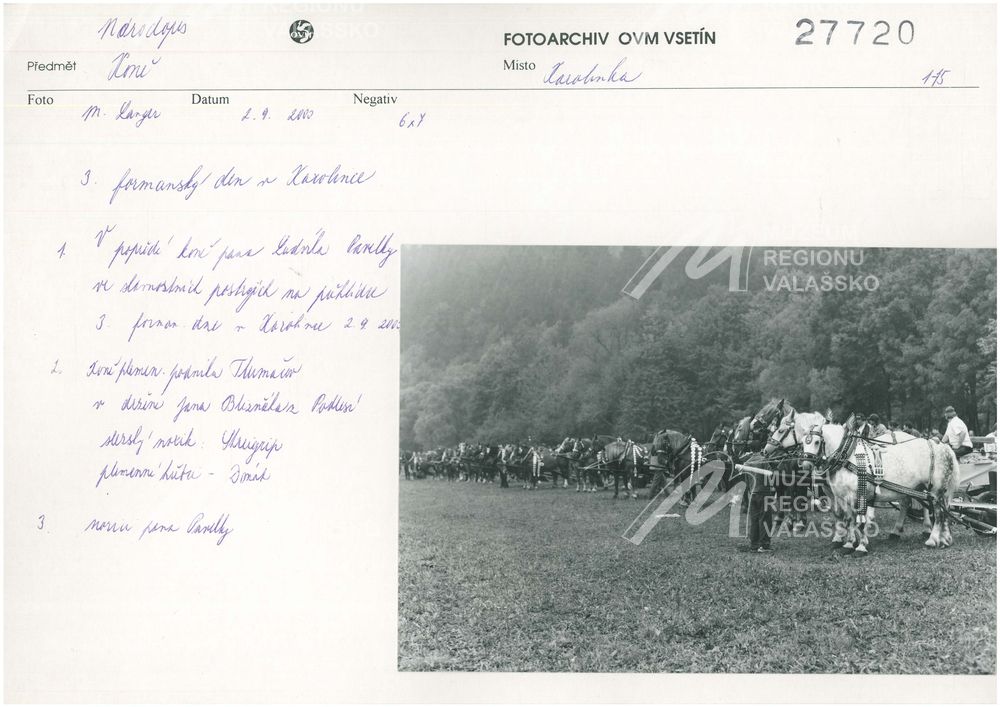 Národopis
FOTOARCHIV OVM VSETÍN
27720
Předmět Koně
Místo Karolinka 175
Foto Datum Negativ
M. Langer 2. 9. 2000 6x7
3. formanský den v Karolince
1. V popředí koně pana Ludvíka Pavelky
ve slavnostních postrojích na přehlídce
3. forman. dne v Karolince 2.9.2000
2. Koně plemen. podniku Tlumačov
v držení pana
slezský norik:
plemenní hřebci -
3 koně pana Pavelky
MUZEUM
REGIONU
VALAŠSKO
MUZEUM
REGIONU
VALAŠSKO
MUZEUM
REGIONU
VALAŠSKO